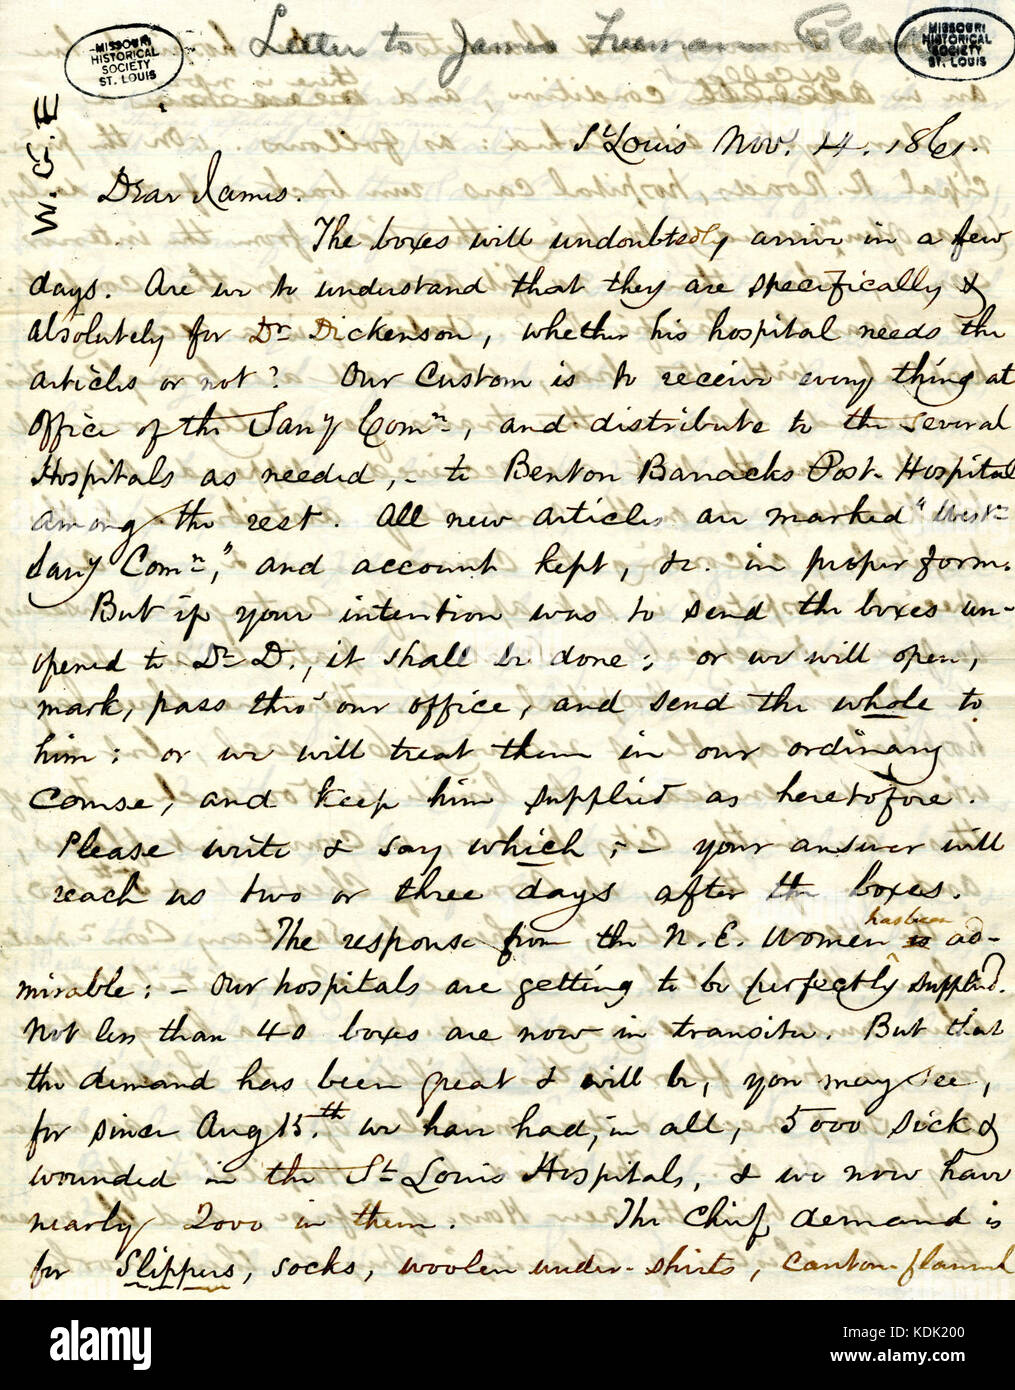 Letter to James Freeman Clarke
MISSOURI
HISTORICAL
SOCIETY
ST. LOUIS
MISSOURI
HISTORICAL
SOCIETY
ST. LOUIS
W. G. E
St Louis Nov. 14. 1861.
Dear James.
The boxes will undoubtedly arrive in a few
days. Are we to understand that they are specifically &
absolutely for Dr Dickenson, whether his hospital needs the
articles or not? Our Custom is to receive every thing at
office of the Sany Comn, and distribute to the several
Hospitals as needed, - to Benton Barracks Post-Hospital
among the rest. All new articles are marked "West
Sany Comn," and account kept, &c. in proper form.
But if your intention was to send the boxes un-
opened to Dr D., it shall be done; or we will open,
mark, pass thro' our office, and send the whole to
him: or we will treat them in our ordinary
course, and keep him supplied as heretofore.
Please write & say which; - your answer will
reach us two or three days after the boxes.
The response from the N. E. Women has been ad-
mirable: - Our hospitals are getting to be perfectly supplied.
Not less than 40 boxes are now in transitu. But that
the demand has been great & will be, you may see,
for since Aug 15.th we have had, in all, 5000 sick &
wounded in the St Louis Hospitals, & we now have
nearly 2000 in them. The Chief demand is
for Slippers, socks, woolen under-shirts, canton flannel
alamy
Image ID: KDK200
www.alamy.com